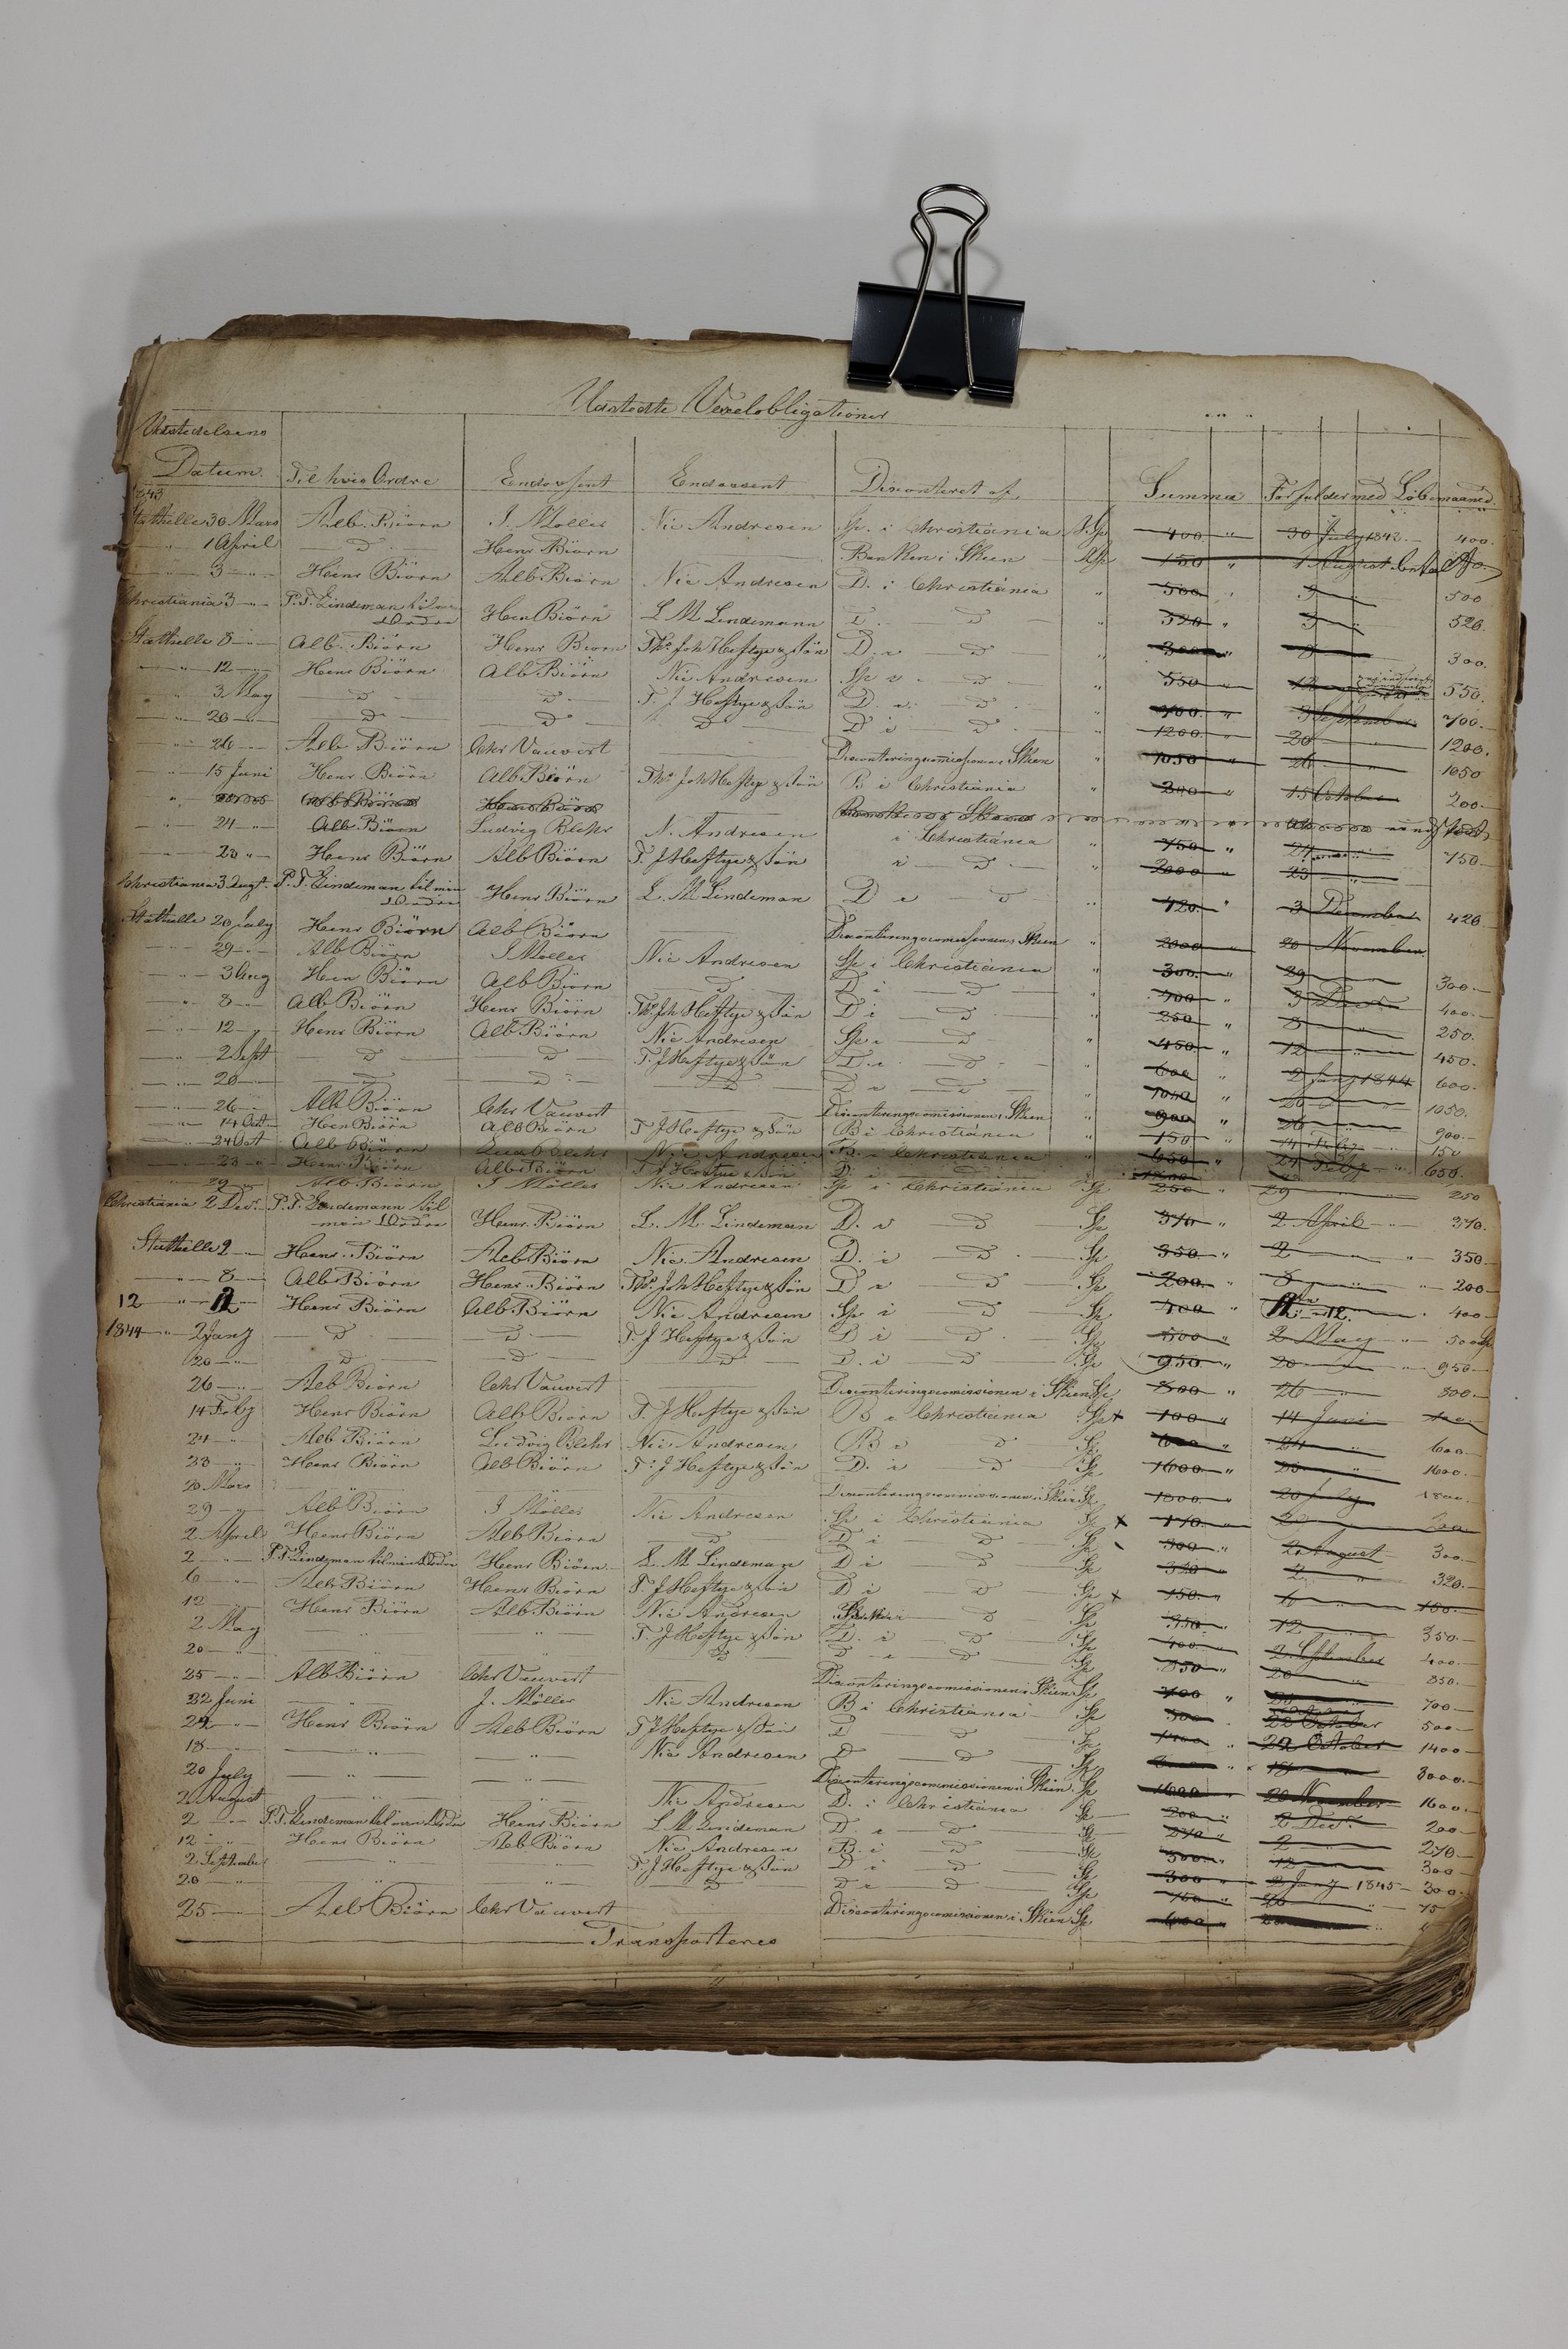 Udstedte Vexelobligationer
Udstedelsens
Datum. Til hvis Ordre Endossent Endossent Disconteret af Summa Forfalder med Løbemaaned.
1843
Stathelle 30 Mars Alb. Biörn J. Møller Nic Andresen Sp. i Christiánia Sp 400 " 30 July 1843 400.
" 1 April D Henr Biörn Banken i Skien Sp 150 " 1 August
" 3 " Henr Biörn Alb Biörn Nic Andresen D. i Christiánia " 500 3 500
Christiania 3 " P. T. Lindeman til min Ordre Henr Biörn L M Lindemann D. D " 520 " 3 520.
Stathelle 8 " Alb. Biörn Henr Biörn Ths Joh Heftye & Sön D. i D " 300 8 300.
" 12 " Henr Biörn Alb Biörn Nic Andresen Sp i D " 550 12 550.
" 3 May D D T. J Heftye & Sön D. i D " 700 " 3 September 700
" 20 D D D D i D 1200 " 20 1200.
" 26 Alb Biörn Chr Vauvert Disconteringscomissionen i Skien 1050 " 26 1050
" 15 Juni Henr. Biörn Alb Biörn Ths Joh Heftye & Sön B i Christiania " 200 " 15 October 200
Alb Biörn Henr Biörn
" 24 " Alb Biörn Ludvig Blehr N. Andresen i Christiánia " 750 " 24 750
" 23 " Henr Biörn Alb Biörn T. J Heftye & Sön i D 2000 " 23
Christiania 3 Augt. P. T. Lindeman til min Ordre Henr Biörn L. M Lindeman D i D " 420 " 3 December 420
Stathelle 20 July Henr Biörn Alb Biörn Disconteringscomissionen i Skien " 2000 20 November
" 29 Alb Biörn J Møller Nic Andresen Sp i Christiánia " 300 " 29 300
" 3 Aug Hen Biörn Alb Biörn D D i D " 400 3 Decr 400
" 8 Alb Biörn Henr Biörn Ths. Joh Heftye & Sön D i D " 250 " 8 250
" 12 " Henr Biörn Alb Biörn Nic Andresen Sp i D " 450 " 12 450.
" 2 Sept D D T. J Heftye & Sön D. i D 600 " 2 Janj 1844 600
" 20 D D D D i D 1050 " 20 1050.
" 26 Alb Biörn Chr Vauvert Disconteringscomissionen i Skien 900 26 900
" 14 Oct Hen Biörn Alb Biörn T J Heftye & Sön B i Christiánia " 150 " 14 150
" 24 Oct Alb Biörn Lud Blehr N. Andresen B. i Christiánia " 650 " 24 Feby 650.
" 23 " Henr Biörn Alb Biörn T J Heftye & Sön D. i D
" 29 " Alb Biörn J Møller Nic Andresen Sp i Christiánia Sp 250 29 250
Christiania 2 Decr. P. T. Lindemann til min Ordre Henr. Biörn L. M. Lindeman D. i D Sp 370 " 2 April 370.
Stathelle 2 " Henr. Biörn Alb Biörn Nic Andresen D. i D Sp 350 " 2 350.
" 8 Alb Biörn Henr. Biörn Ths. Joh Heftye & Sön D i D Sp 200 " 8 200
12 " 12 Henr Biörn Alb. Biörn Nic Andresen Sp i D Sp 400 " 12 400
1844 " 2 Janj D D T. J Heftye & Sön D i D Sp 500 " 2 May 500
20 " D D D D. i D Sp 950 " 20 950
26 " Alb Biörn Chr Vauvert Disconteringscomissionen i Skien Sp 800 " 26 800
14 Feby Henr Biörn Alb Biörn T. J Heftye & Sön B i Christiánia Sp x 100 " 14 Juni 100
24 " Alb Biörn Ludvig Blehr Nic Andresen B i D Sp 600 " 24 600
23 " Henr Biörn Alb Biörn T. J Heftye & Sön D. i D Sp 1600 " 23 1600
20 Mars Disconteringscommissionen i Skien Sp 1800 " 20 July 1800
29 " Alb Biörn J Møller Nic Andresen Sp i Christiánia Sp x 170 " 29
2 April Henr Biörn Alb Biörn D D i D Sp 300 " 2 August 300
2 " P. T. Lindeman til min Ordre Henr Biörn L. M Lindeman D i D Sp 320 " 2 320
6 Alb Biörn Henr Biörn T. J Heftye & Sön D i D Sp x 150 " 6
12 Henr Biörn Alb. Biörn Nic Andresen D Sp 350 " 12 350
2 May " " T. J Heftye & Sön D. i D Sp 400 " 2 September 400
20 " D D i D Sp 850 " 20 850
25 " Alb Biörn Chr Vauvert Disconteringscomissionen i Skien Sp 700 " 700
22 Juni J. Møller Nic Andresen B i Christiania Sp 500 22 October 500
24 " Henr Biörn Alb Biörn T J Heftye & Sön D D Sp 1400 " 24 October 1400
18 " " Nic Andresen D D Sp 18 3000
20 July " " Disconteringscommissionen i Skien Sp 1600 " 20 November 1600
2 August " " Nic Andresen D. i Christiania Sp 200 " 2 Decr. 200
2 " P. T. Lindeman til min Ordre Henr Biörn L M Lindeman D. i D Sp 270 " 2 270
12 " Henr Biörn Alb Biörn Nic Andresen B. i D Sp 300 12 300
2 September " " T. J Heftye & Sön D i D Sp 300 " 2 Janj 1845 300
20 " D D i D Sp 760 " 20
25 Alb Biörn Chr Vauvert Disconteringscomissionen i Skien Sp 600 "
Transporteres